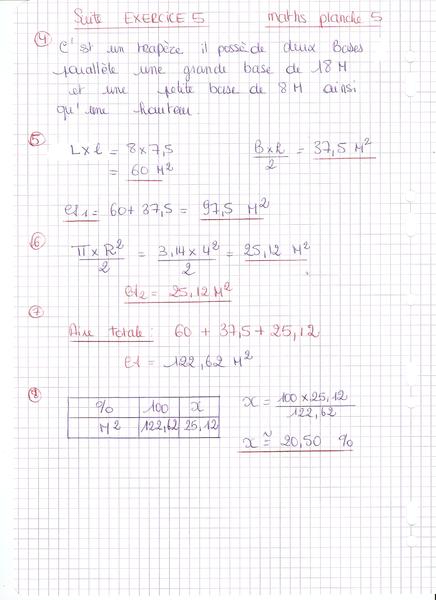 Suite EXERCICE 5 maths planche 5
4 C'est un trapèze il possède deux Bases
parallèle une grande base de 18 M
et une petite base de 8 M ainsi
qu'une hauteur.
5 L x l = 8 x 7,5
= 60 M²
B x h / 2 = 37,5 M²
A1 = 60 + 37,5 = 97,5 M²
6 π x R² / 2 = 3,14 x 4² / 2 = 25,12 M²
A2 = 25,12 M²
7 Aire totale : 60 + 37,5 + 25,12
A = 122,62 M²
8 % 100 x
M² 122,62 25,12
x = 100 x 25,12 / 122,62
x ≅ 20,50 %